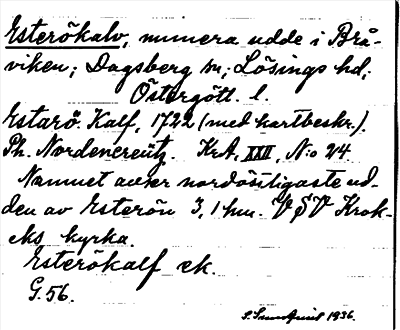 Esterökalv, numera udde i Brå-
viken; Dagsberg sn; Lösings hd;
Östergötl. l.
Estarö. Kalf, 1722 (med kartbeskr.).
Ph. Nordencreutz. KrA, XXII, N:o 24
Namnet avser nordöstligaste ud-
den av Esterön 3,1 km. V S V Krok-
eks kyrka.
Esterökalf ek.
G. 56.
1936.